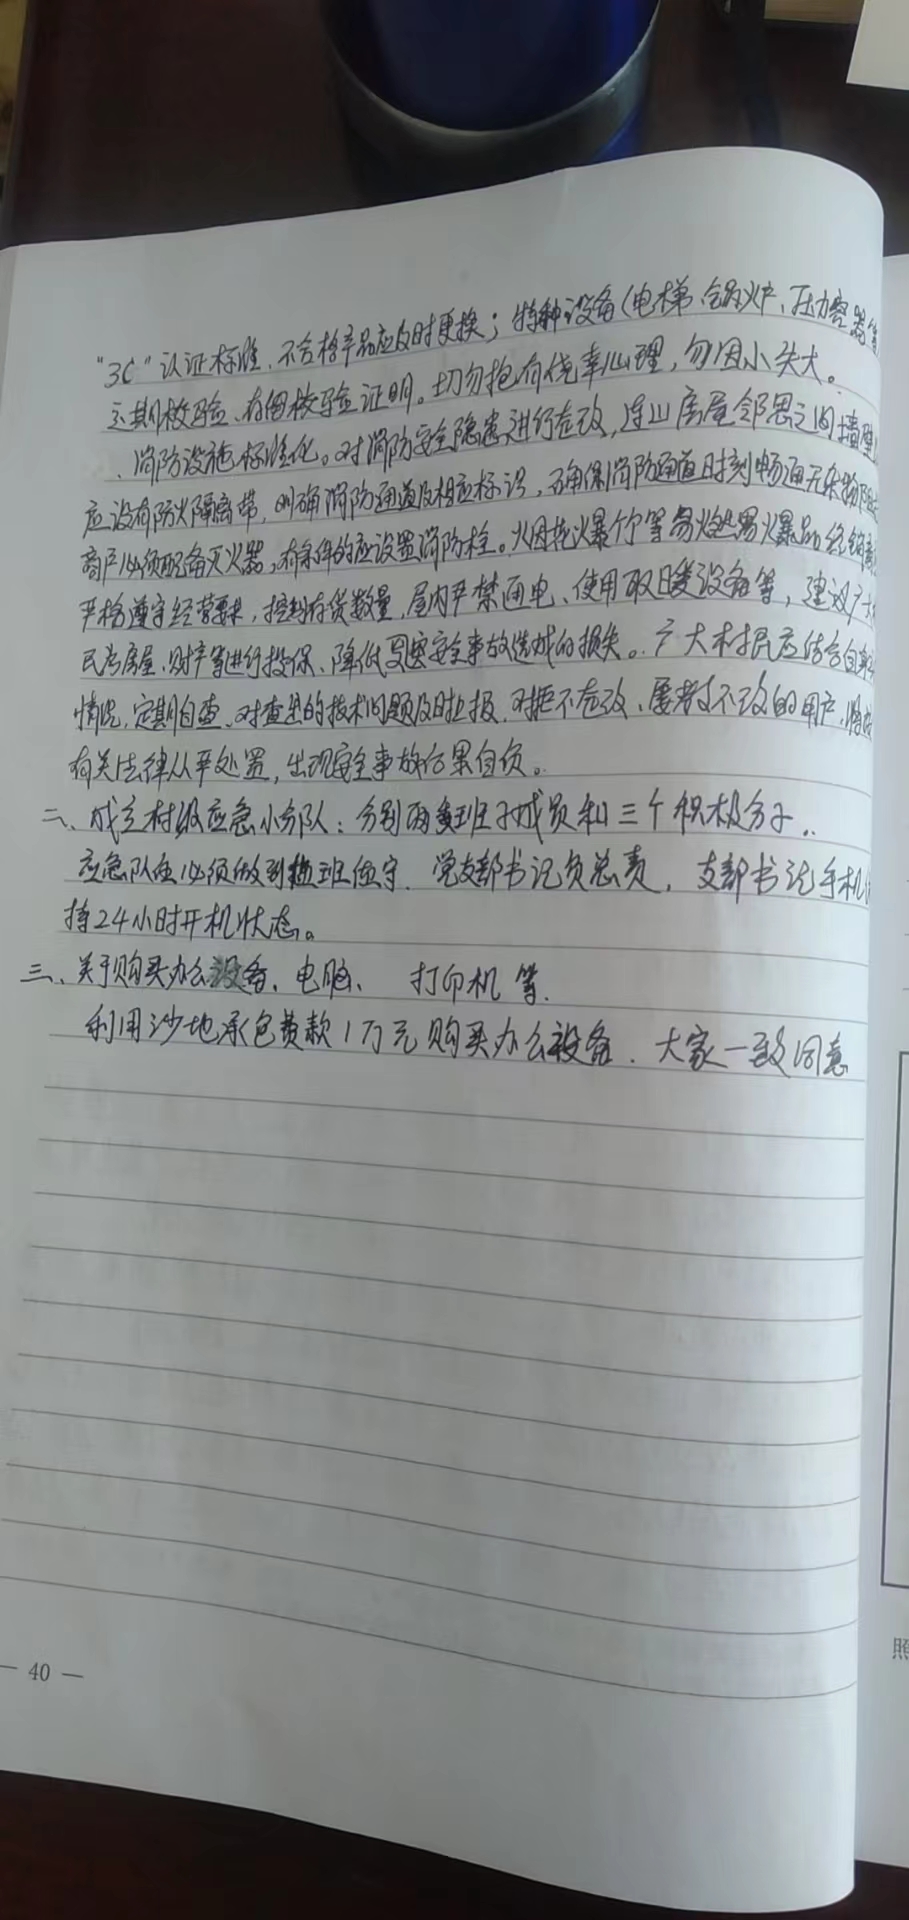 "3C"认证标准、不合格产品应及时更换；特种设备(电梯、锅炉、压力容器等
定期校验、存留校验证明。切勿抱有侥幸心理，勿因小失大。
、消防设施标准化。对消防安全隐患进行整改，连山房屋邻居之间墙壁
应设有防火隔离带，明确消防通道及相应标识，确保消防通道时刻畅通无杂物
商户必须配备灭火器，有条件的应设置消防栓。火因花火爆竹等易燃易火暴品经销商
严格遵守经营要求，控制存货数量，屋内严禁通电、使用取暖设备等，建议广大
民为房屋、财产等进行投保、降低突发安全事故造成的损失。广大村民应结合自身
情况，定期自查、对查出的技术问题及时上报，对拒不整改、屡教不改的用户，
有关法律从严处置，出现安全事故后果自负。
二、成立村级应急小分队：分别两委班子成员和三个积极分子..
应急队伍必须做到值班值守．党支部书记负总责，支部书记手机
持24小时开机状态。
三、关于购买办公设备、电脑、打印机等．
利用沙地承包费款1万元购买办公设备．大家一致同意
— 40 —
照